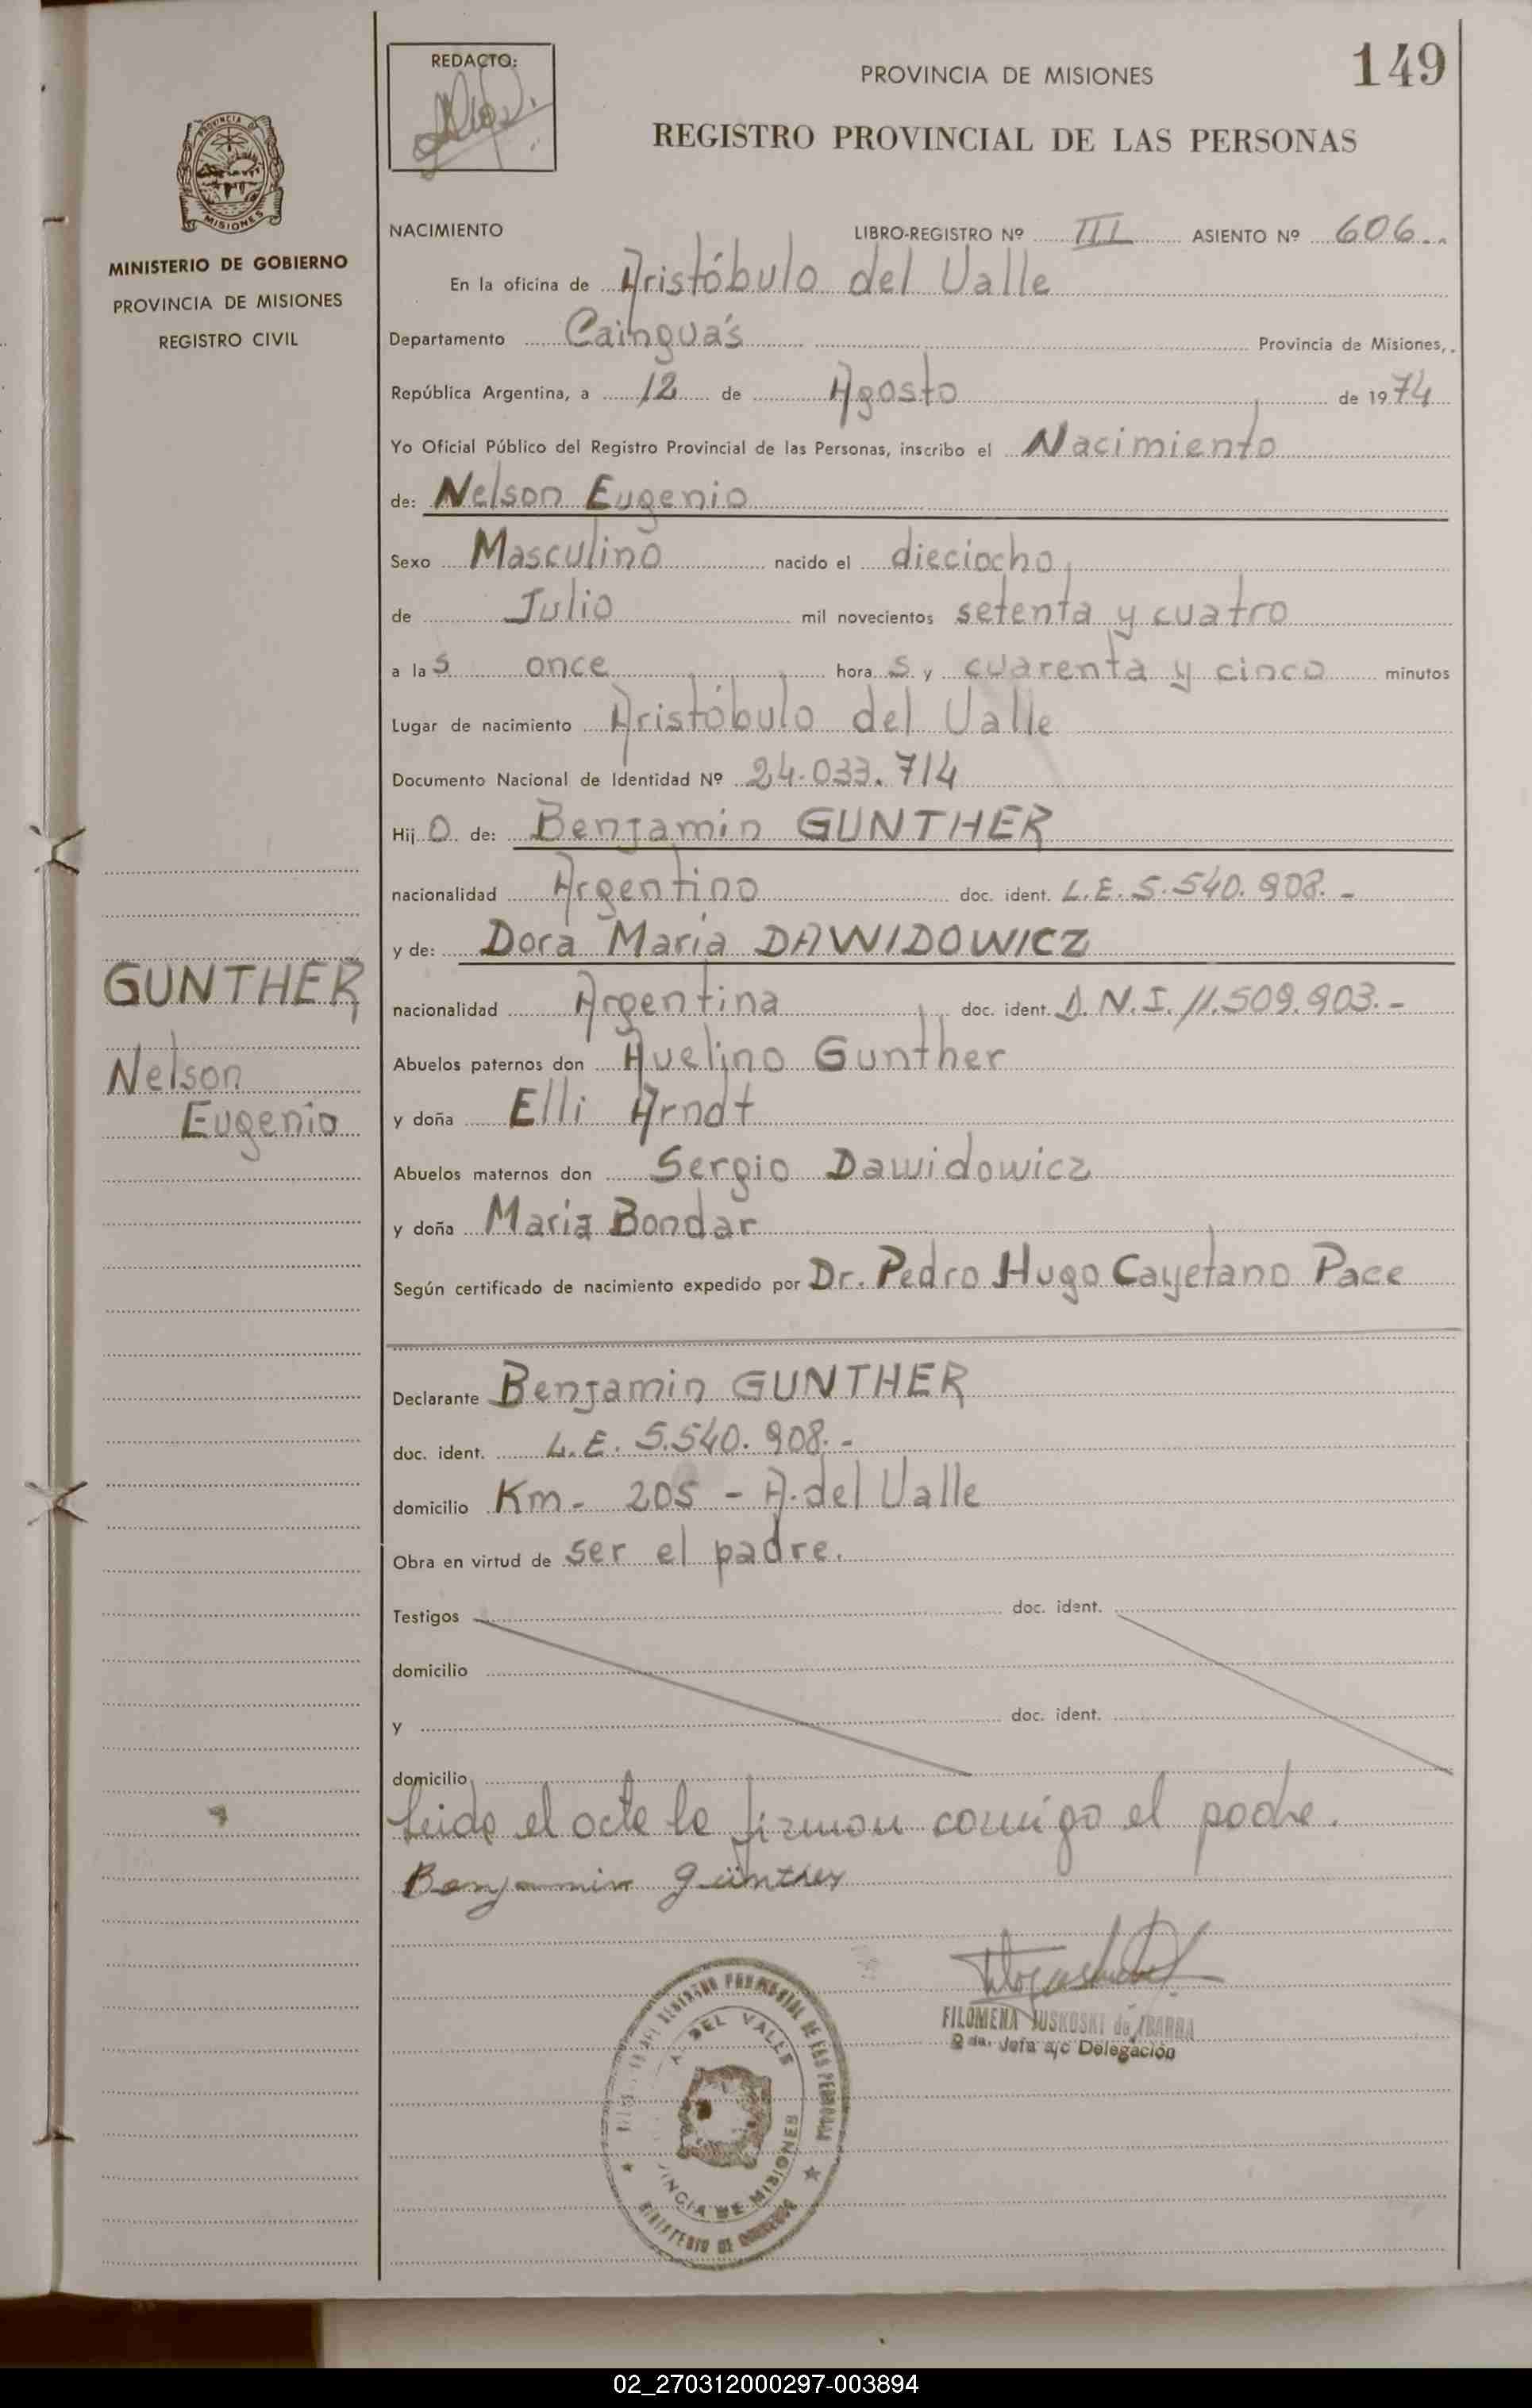 REDACTO:
PROVINCIA DE MISIONES
149
REGISTRO PROVINCIAL DE LAS PERSONAS
PROVINCIA DE
MISIONES
MINISTERIO DE GOBIERNO
PROVINCIA DE MISIONES
REGISTRO CIVIL
NACIMIENTO LIBRO-REGISTRO Nº III ASIENTO Nº 606
En la oficina de Aristóbulo del Valle
Departamento Cainguás Provincia de Misiones,
República Argentina, a 12 de Agosto de 1974
Yo Oficial Público del Registro Provincial de las Personas, inscribo el Nacimiento
de: Nelson Eugenio
Sexo Masculino nacido el dieciocho
de Julio mil novecientos setenta y cuatro
a las once horas y cuarenta y cinco minutos
Lugar de nacimiento Aristóbulo del Valle
Documento Nacional de Identidad Nº 24.033.714
Hijo de: Benjamin GUNTHER
nacionalidad Argentino doc. ident. L.E. 5.540.908.-
y de: Dora Maria DAWIDOWICZ
nacionalidad Argentina doc. ident. D.N.I. 11.509.903.-
Abuelos paternos don Avelino Gunther
y doña Elli Arndt
Abuelos maternos don Sergio Dawidowicz
y doña Maria Bondar
Según certificado de nacimiento expedido por Dr. Pedro Hugo Cayetano Pace
GUNTHER
Nelson
Eugenio
Declarante Benjamin GUNTHER
doc. ident. L.E. 5.540.908.-
domicilio Km- 205 - A. del Valle
Obra en virtud de ser el padre.
Testigos doc. ident.
domicilio
y doc. ident.
domicilio
Leida el acta la firman comigo el padre.
Benjamin Günther
FILOMENA JUSKOSKI de IBARRA
2 da. Jefa a/c Delegación
REGISTRO PROVINCIAL DE LAS PERSONAS
A. DEL VALLE
PROVINCIA DE MISIONES
MINISTERIO DE GOBIERNO
02_270312000297-003894